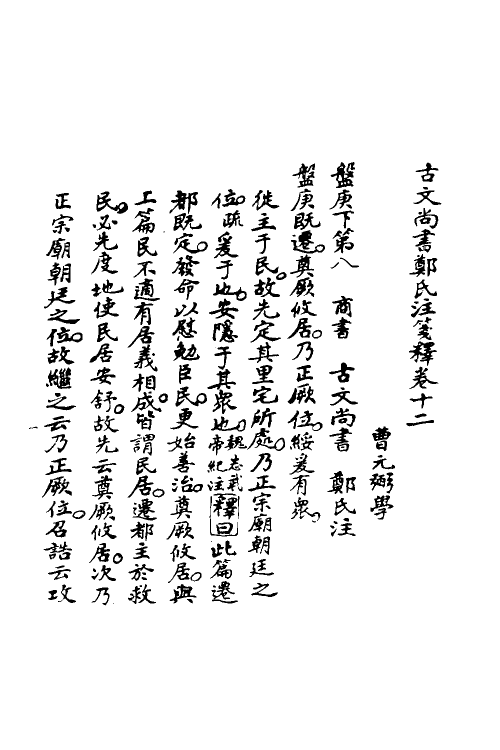 古文尚書鄭氏注箋釋卷十二
曹元弼學
盤庚下第八　商書　古文尚書　鄭氏注
盤庚既遷。奠厥攸居。乃正厥位。綏爰有眾。
徙主于民。故先定其里宅所處。乃正宗廟朝廷之
位。疏爰于也。安隱于其眾也。魏志武帝紀注釋曰此篇遷
都既定。發命以慰勉臣民。更始善治。奠厥攸居。與
上篇民不適有居義相成。皆謂民居。遷都主於救
民。必先度地使民居安舒。故先云奠厥攸居。次乃
正宗廟朝廷之位。故繼之云乃正厥位。召誥云攻